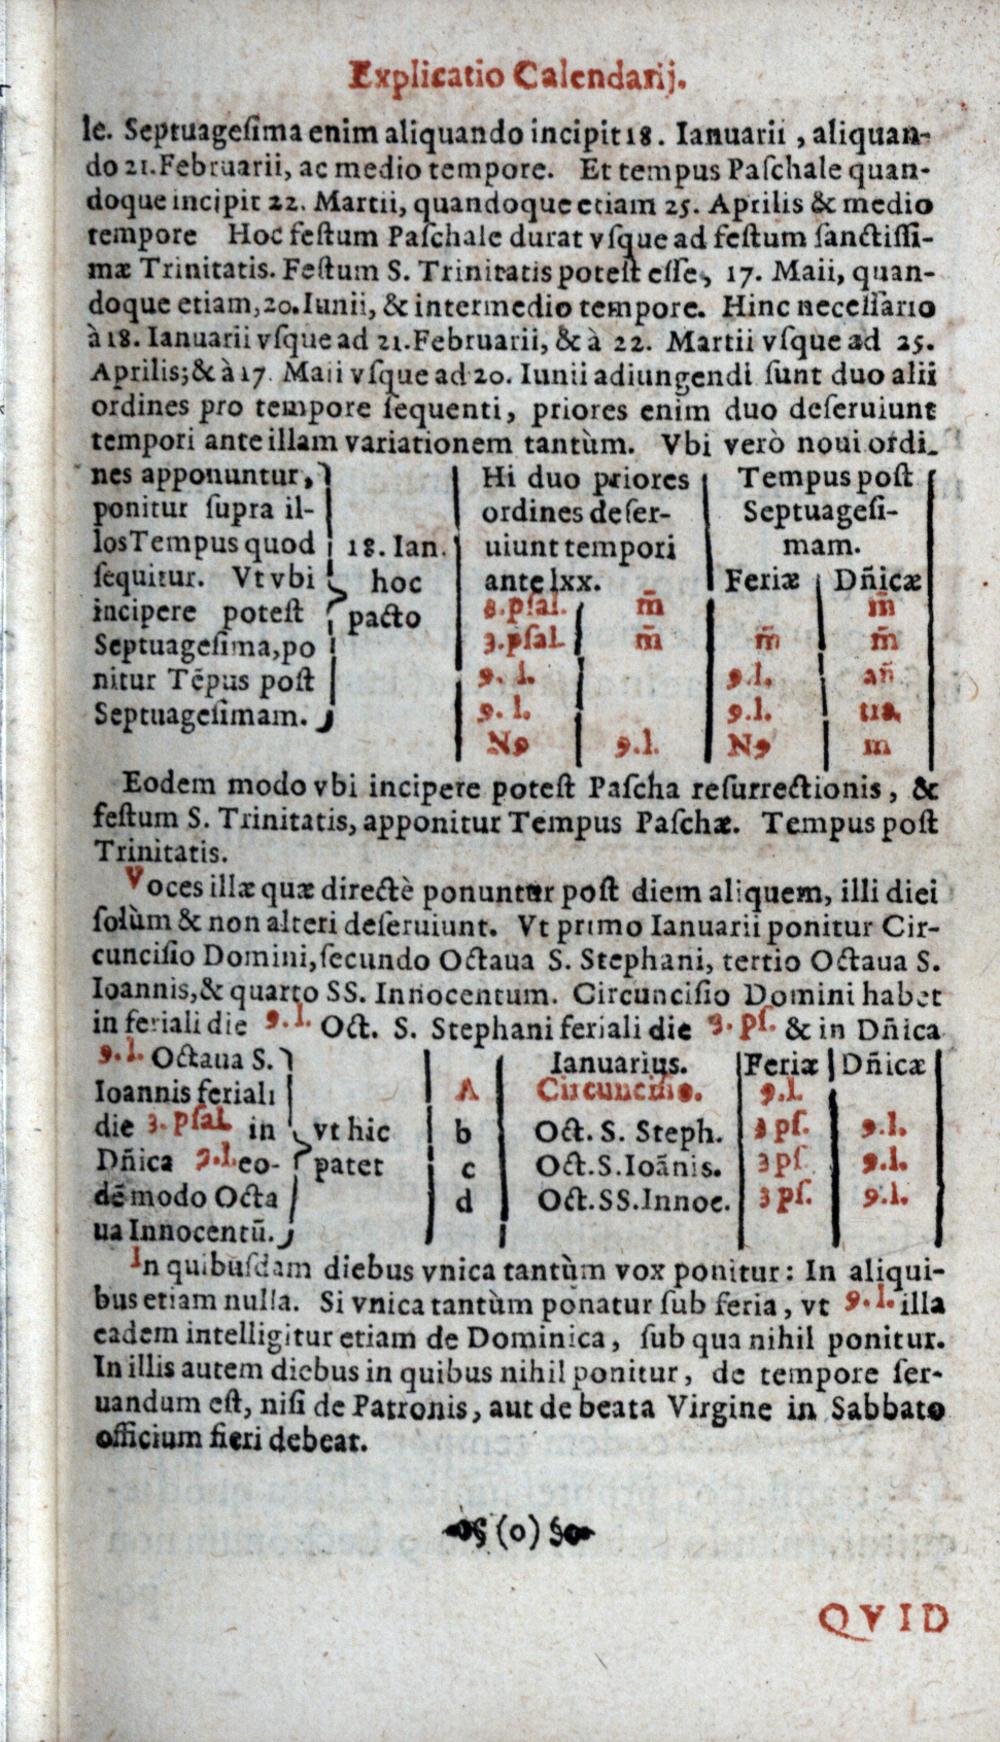 Explicatio Calendarij.
le. Septuagesima enim aliquando incipit 18. Ianuarii, aliquan-
do 21. Februarii, ac medio tempore. Et tempus Paschale quan-
doque incipit 22. Martii, quandoque etiam 25. Aprilis & medio
tempore Hoc festum Paschale durat vsque ad festum sanctissi-
mæ Trinitatis. Festum S. Trinitatis potest esse, 17. Maii, quan-
doque etiam, 20. Iunii, & intermedio tempore. Hinc necessario
à 18. Ianuarii vsque ad 21. Februarii, & à 22. Martii vsque ad 25.
Aprilis; & à 17. Maii vsque ad 20. Iunii adiungendi sunt duo alii
ordines pro tempore sequenti, priores enim duo deseruiunt
tempori ante illam variationem tantùm. Vbi verò noui ordi-
nes apponuntur,
ponitur supra il-
los Tempus quod
sequitur. Vt vbi
incipere potest
Septuagesima, po
nitur Tẽpus post
Septuagesimam.
18. Ian.
hoc
pacto
Hi duo priores
ordines deser-
uiunt tempori
ante lxx.
Tempus post
Septuagesi-
mam.
Feriæ Dñicæ
8. psal. m̄ m̄
3. psal m̄ m̄ m̄
9. l. 9. l. añ
9. l. 9. l. tia
N9 9. l. N9 m
Eodem modo vbi incipere potest Pascha resurrectionis, &
festum S. Trinitatis, apponitur Tempus Paschæ. Tempus post
Trinitatis.
Voces illæ quæ directè ponuntur post diem aliquem, illi diei
solùm & non alteri deseruiunt. Vt primo Ianuarii ponitur Cir-
cuncisio Domini, secundo Octaua S. Stephani, tertio Octaua S.
Ioannis, & quarto SS. Innocentum. Circuncisio Domini habet
in feriali die 9. l. Oct. S. Stephani feriali die 3. ps. & in Dñica
9. l. Octaua S.
Ioannis feriali
die 3. psal in
Dñica 9. l. eo-
dẽ modo Octa
ua Innocentũ.
vt hic
patet
Ianuarius. Feriæ Dñicæ
A Circuncisio. 9. l.
b Oct. S. Steph. 3 ps. 9. l.
c Oct. S. Ioãnis. 3 ps 9. l.
d Oct. SS. Innoc. 3 ps. 9. l.
In quibusdam diebus vnica tantùm vox ponitur: In aliqui-
bus etiam nulla. Si vnica tantùm ponatur sub feria, vt 9. l. illa
eadem intelligitur etiam de Dominica, sub qua nihil ponitur.
In illis autem diebus in quibus nihil ponitur, de tempore ser-
uandum est, nisi de Patronis, aut de beata Virgine in Sabbato
officium fieri debeat.
§ (0) §
QVID